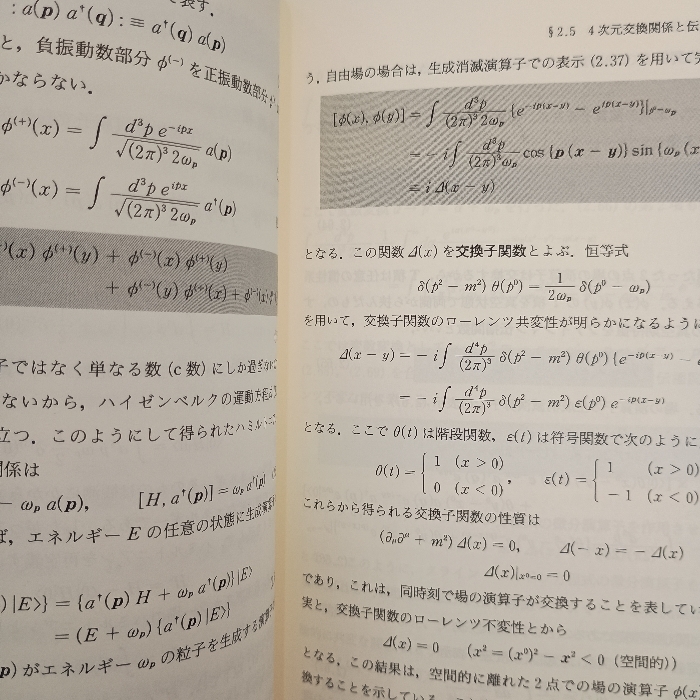 : a(p) a†(q) : ≡ a†(q) a(p)
と，負振動数部分 φ⁽⁻⁾ を正振動数部分
かならない．
φ⁽⁺⁾(x) = ∫ d³p e^{-ipx} / √((2π)³ 2ω_p) a(p)
φ⁽⁻⁾(x) = ∫ d³p e^{ipx} / √((2π)³ 2ω_p) a†(p)
(x) φ⁽⁺⁾(y) + φ⁽⁻⁾(x) φ⁽⁺⁾(y)
+ φ⁽⁻⁾(y) φ⁽⁺⁾(x) + φ⁽⁻⁾(x)
子ではなく単なる数 (c 数) にしか過ぎ
ないから，ハイゼンベルクの運動方程
立つ．このようにして得られたハミル
関係は
− ω_p a(p), [H, a†(p)] = ω_p a†(p)
ば，エネルギー E の任意の状態に生成演算
) |E⟩} = {a†(p) H + ω_p a†(p)}|E⟩
= (E + ω_p) {a†(p) |E⟩}
p) がエネルギー ω_p の粒子を生成する
§2.5 4 次元交換関係と伝
う．自由場の場合は，生成消滅演算子での表示 (2.37) を用いて
[φ(x), φ(y)] = ∫ d³p / (2π)³ 2ω_p {e^{-ip(x-y)} − e^{ip(x-y)}}|_{p⁰=ω_p}
= − i∫ d³p / (2π)³ ω_p cos {p (x − y)} sin {ω_p (x
= i Δ(x − y)
となる．この関数 Δ(x) を交換子関数とよぶ．恒等式
δ(p² − m²) θ(p⁰) = 1 / 2ω_p δ(p⁰ − ω_p)
を用いて，交換子関数のローレンツ共変性が明らかになるように
Δ(x − y) = − i∫ d⁴p / (2π)³ δ(p² − m²) θ(p⁰) {e^{-ip(x-y)} −
= − i∫ d⁴p / (2π)³ δ(p² − m²) ε(p⁰) e^{-ip(x-y)}
となる．ここで θ(t) は階段関数，ε(t) は符号関数で次のように
θ(t) = { 1 (x > 0) 0 (x < 0) , ε(t) = { 1 (x > 0) − 1 (x < 0)
これらから得られる交換子関数の性質は
(∂_μ∂^μ + m²) Δ(x) = 0, Δ(− x) = − Δ(x)
Δ(x)|_{x⁰=0} = 0
であり，これは，同時刻で場の演算子が交換することを表してい
実と，交換子関数のローレンツ不変性とから
Δ(x) = 0 (x² = (x⁰)² − x² < 0 (空間的))
となる．この結果は，空間的に離れた 2 点での場の演算子 φ(x
換することを示している．